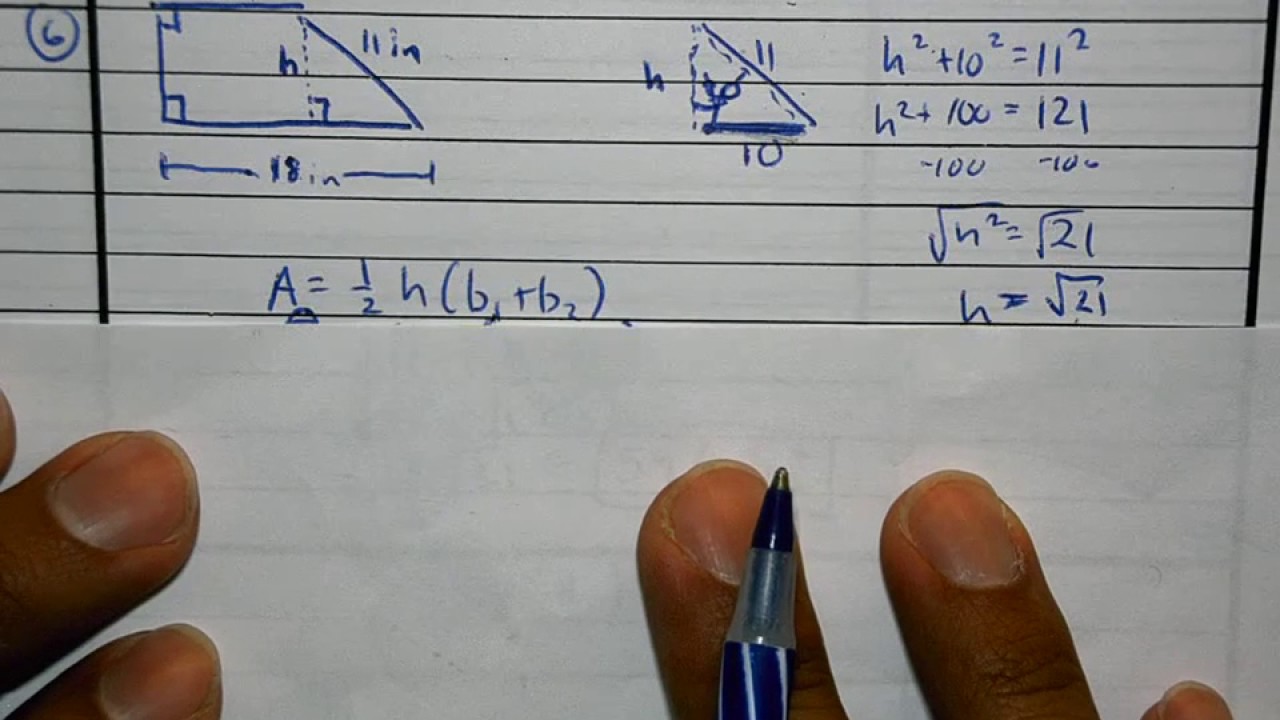 6
11 in
h
18 in
h
11
10
h² + 10² = 11²
h² + 100 = 121
-100 -100
√h² = √21
h = √21
A = 1/2 h (b₁ + b₂)